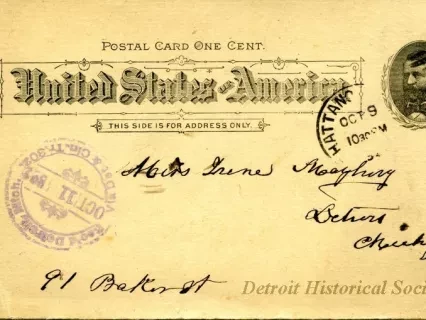 POSTAL CARD ONE CENT.
United States of America
THIS SIDE IS FOR ADDRESS ONLY.
HATTANO
OCT 9
1030PM
OCT 11
Miss Irene Maybury
Detroit
Mich
91 Baker st
Detroit Historical Soci